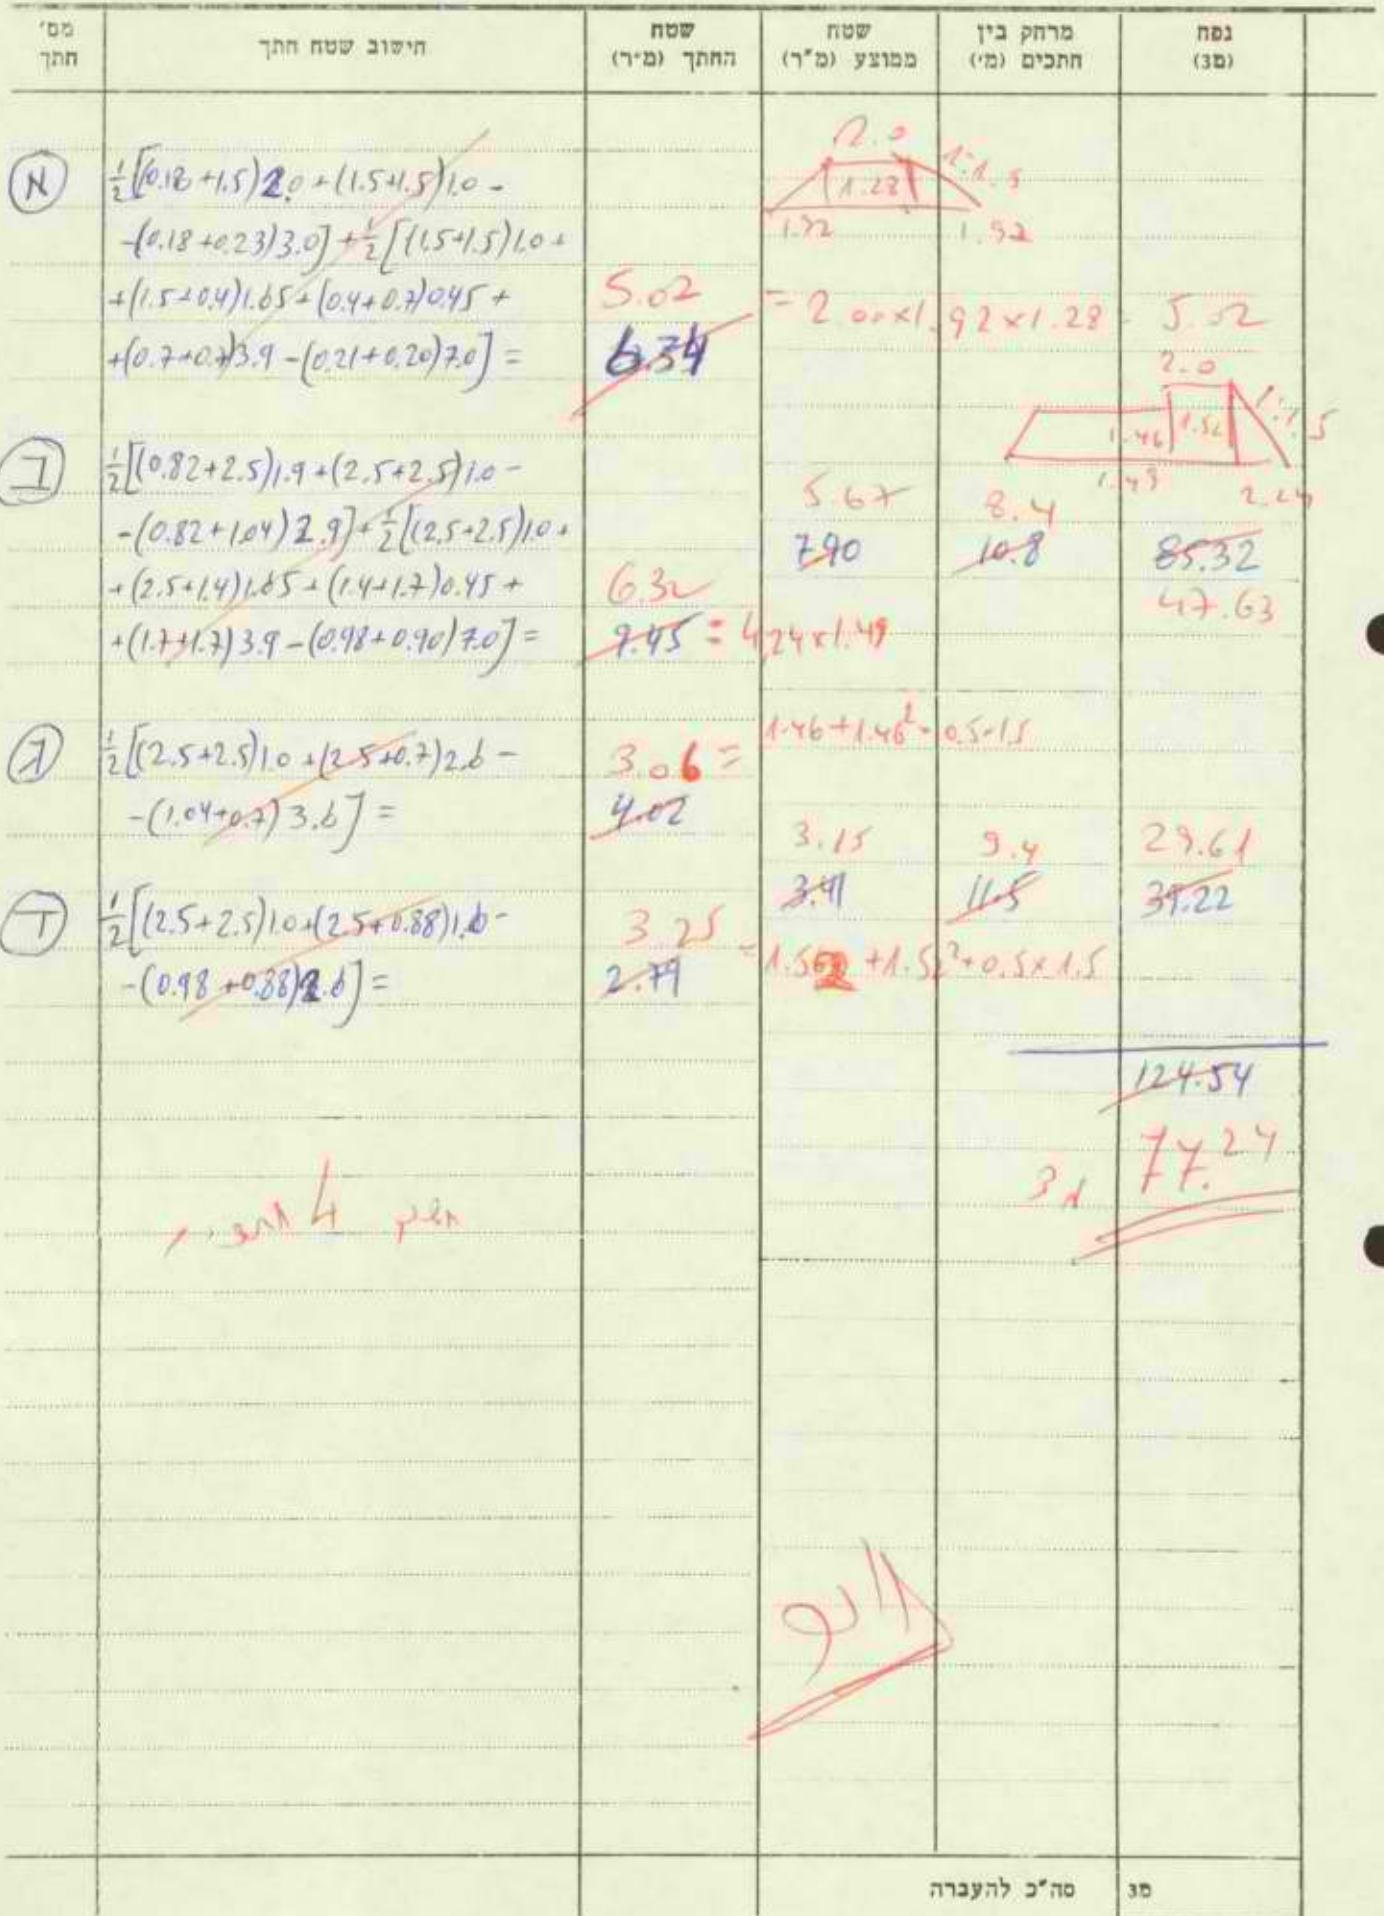 מס' חתך
חישוב שטח חתך
שטח החתך (מ"ר)
שטח ממוצע (מ"ר)
מרחק בין חתכים (מ')
נפח (מ3)
א
½[(0.18+1.5)2.0+(1.5+1.5)1.0-
-(0.18+0.23)3.0]+½[(1.5+1.5)1.0+
+(1.5+0.4)1.65+(0.4+0.7)0.45+
+(0.7+0.7)3.9-(0.21+0.20)7.0]=
2.0
1.28
1:1.5
1.92
1.92
5.02 = 2.00x1.92x1.28 5.02
ב
½[(0.82+2.5)1.9+(2.5+2.5)1.0-
-(0.82+1.04)2.9]+½[(2.5+2.5)1.0+
+(2.5+1.4)1.65+(1.4+1.7)0.45+
+(1.7+1.7)3.9-(0.98+0.90)7.0]=
2.0
1.46 1.52 1:1.5
1.49
5.67 8.4
7.90 10.8 85.32
6.32 47.63
9.45 = 4.24x1.49
ג
½[(2.5+2.5)1.0+(2.5+0.7)2.6-
-(1.04+0.7)3.6]=
3.06 = 1.46+1.46²-0.5-1.5
4.02
3.15 9.4 29.61
3.41 11.5 39.22
ד
½[(2.5+2.5)1.0+(2.5+0.88)1.6-
-(0.98+0.88)2.6]=
3.25 = 1.52+1.52²+0.5x1.5
2.79
124.54
77.24
4
סה"כ להעברה
מ3